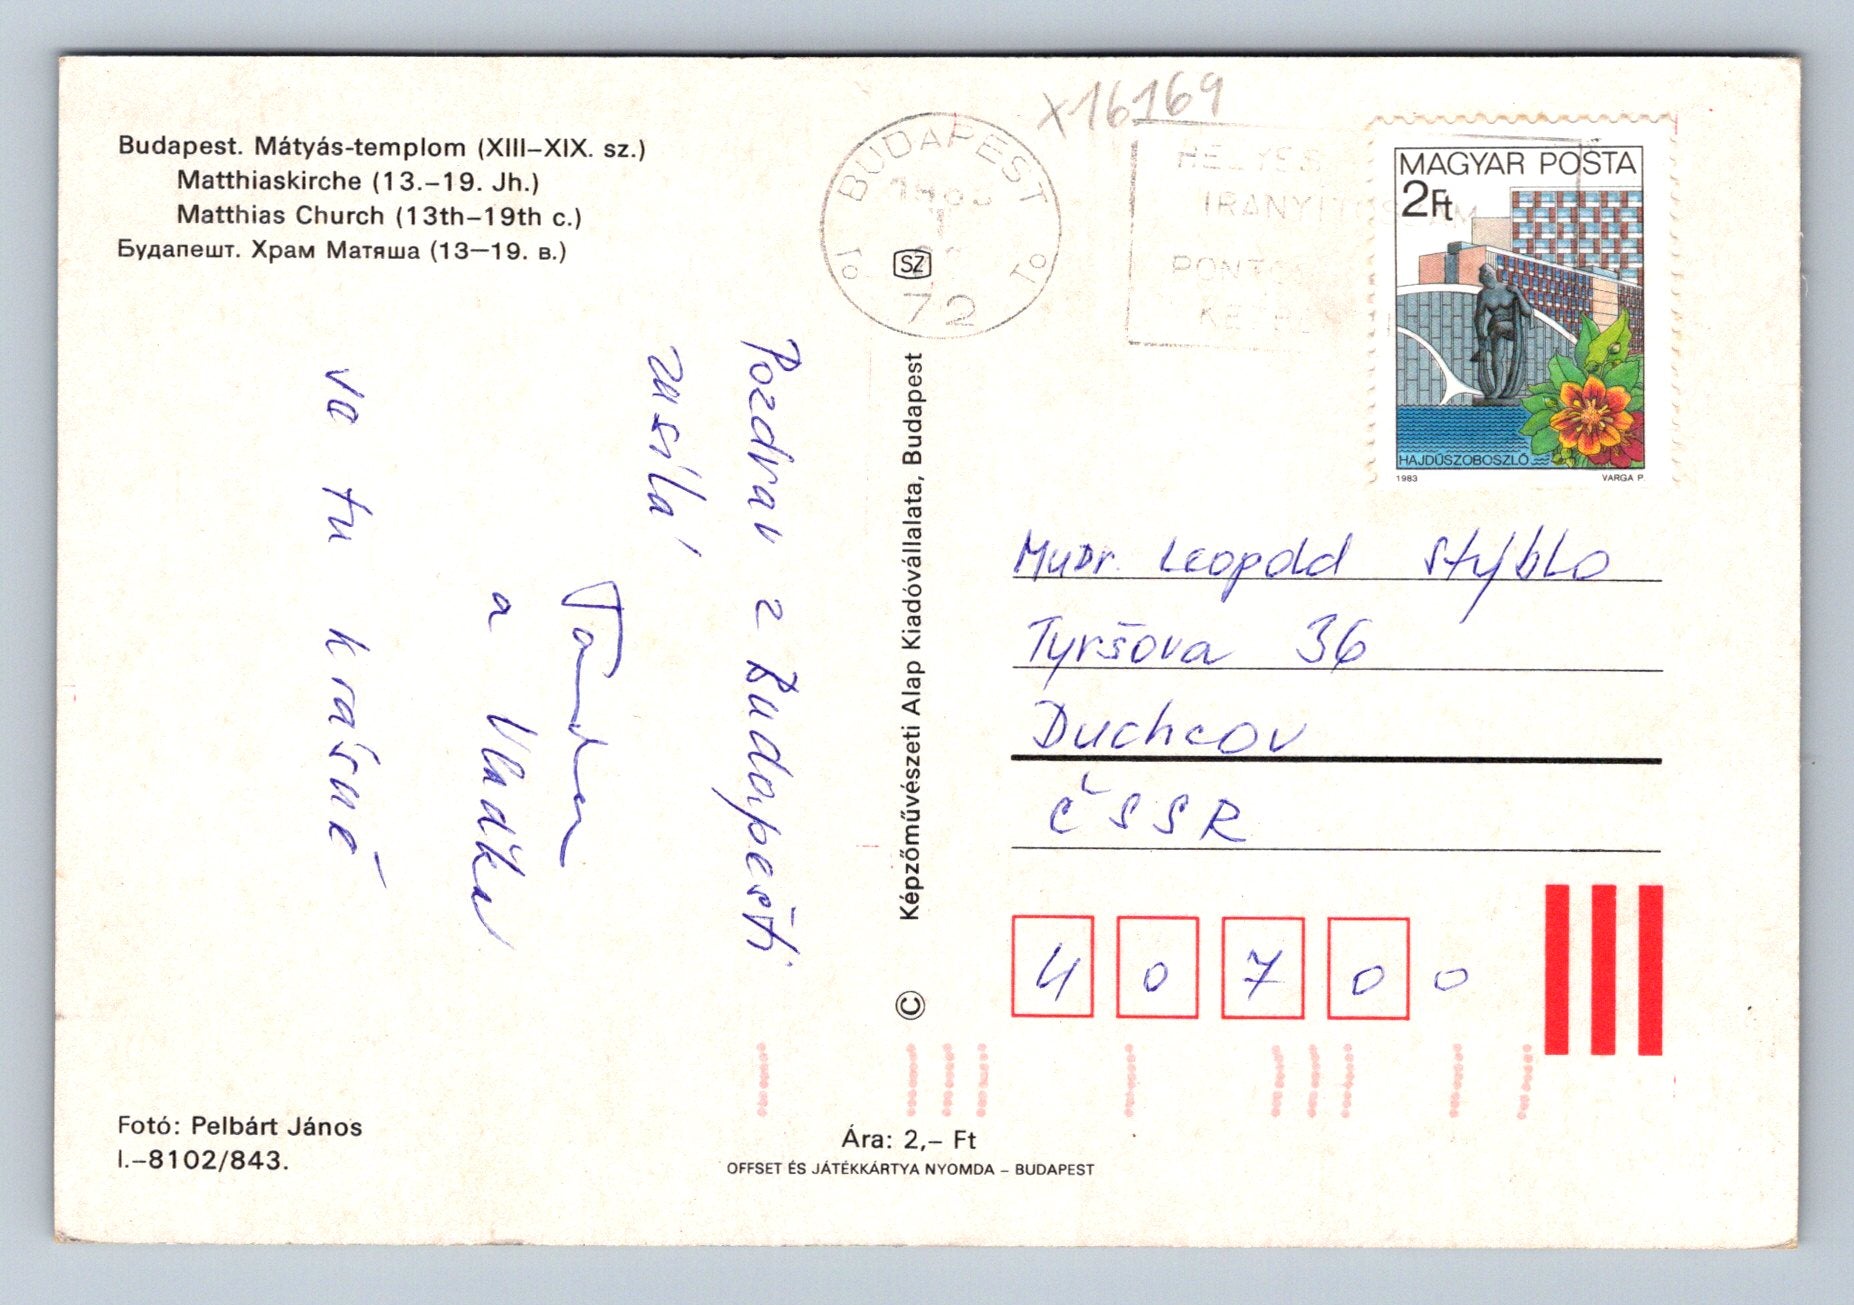 Budapest. Mátyás-templom (XIII–XIX. sz.)
Matthiaskirche (13.–19. Jh.)
Matthias Church (13th–19th c.)
Будапешт. Храм Матяша (13—19. в.)
Pozdrav z Budapešti
zasílá
a Vladka
je tu krásně
Fotó: Pelbárt János
I.–8102/843.
Képzőművészeti Alap Kiadóvállalata, Budapest
©
Ára: 2,– Ft
OFFSET ÉS JÁTÉKKÁRTYA NYOMDA – BUDAPEST
X16169
BUDAPEST
SZ
72
HELYES
IRANYITOSZAM
MAGYAR POSTA
2Ft
HAJDÚSZOBOSZLÓ
1983 VARGA P.
MUDr. Leopold Stýblo
Tyršova 36
Duchcov
ČSSR
4 0 7 0 0